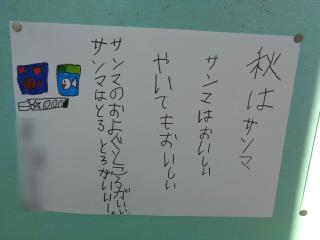 秋はサンマ
サンマはおいしい
やいてもおいしい
サンマのおよぐところがいい
サンマはとろとろがいい。